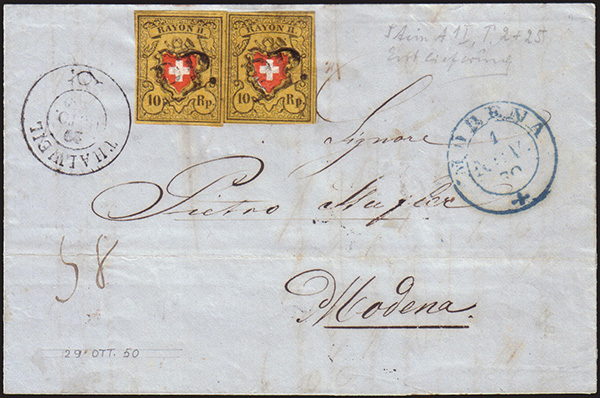 RAYON II.
10 Rp.
RAYON II.
10 Rp.
Stein A 1 II, T. 2 + 25
Erst Lieferung
THALWEIL
29
MODENA
1
NOV.
50
Signore
Pietro
Modena
58
29 OTT. 50